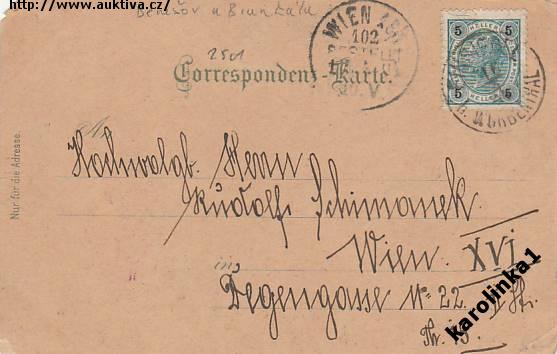 http://www.auktiva.cz/
Benešov u Bruntálu
2501
WIEN
102
Correspondenz-Karte.
5 HELLER 5
5 HELLER 5
WÜRBENTHAL
Nur für die Adresse.
Hochwolgb. Herrn
Rudolf Schimanek
Wien XVI
in
Degengasse Nº 22.
Th. 13.
karolinka1